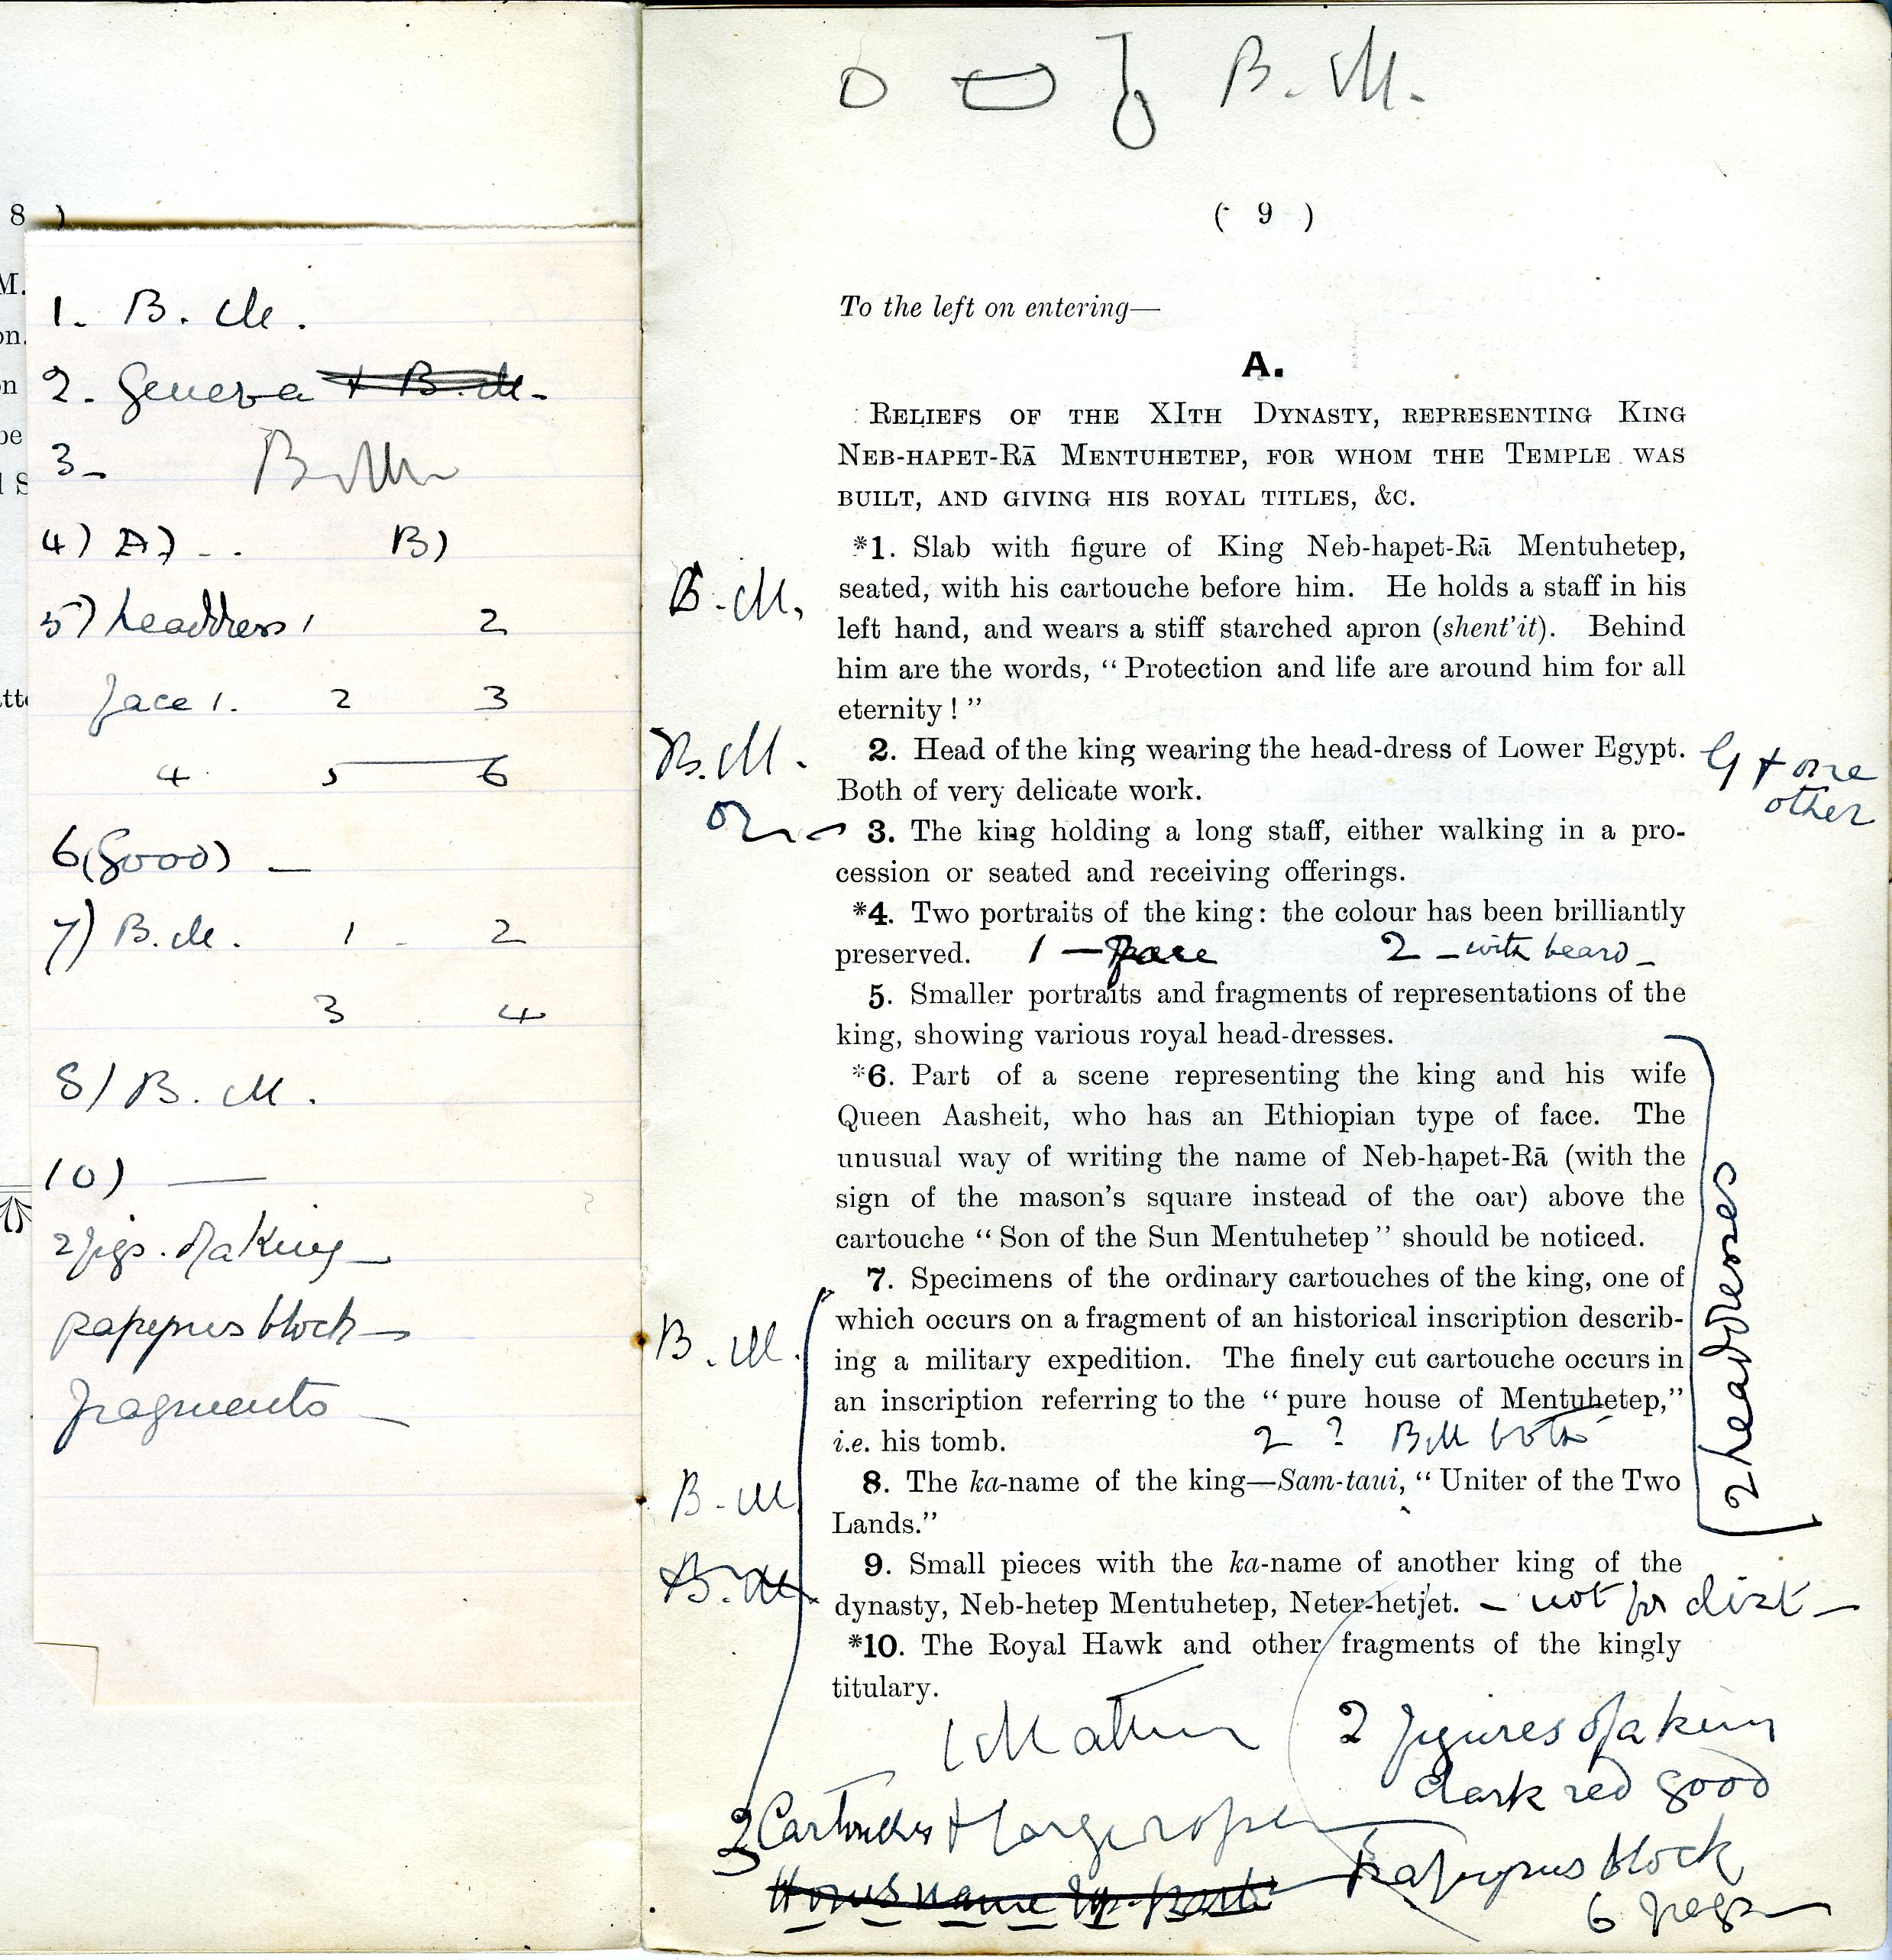 8 )
M.
on.
on
be
d S
atte
1. B. M.
2. Geneva + B.M.
3- B.M.
4) A) - . B)
5) headdress 1 2
face 1. 2 3
4 5 6
6 (good) —
7) B.M. 1 - 2
3 4
8/ B.M.
10) —
2 figs. of a King —
papyrus block —
fragments —
B.M.
( 9 )
To the left on entering—
A.
Reliefs of the XIth Dynasty, representing King
Neb-hapet-Rā Mentuhetep, for whom the Temple was
built, and giving his royal titles, &c.
*1. Slab with figure of King Neb-hapet-Rā Mentuhetep,
B.M.
seated, with his cartouche before him. He holds a staff in his
left hand, and wears a stiff starched apron (shent'it). Behind
him are the words, “ Protection and life are around him for all
eternity ! ”
B.M.
2. Head of the king wearing the head-dress of Lower Egypt.
G + one
other
Both of very delicate work.
3. The king holding a long staff, either walking in a pro-
cession or seated and receiving offerings.
*4. Two portraits of the king: the colour has been brilliantly
preserved. 1 — face 2 — with beard —
5. Smaller portraits and fragments of representations of the
king, showing various royal head-dresses.
2 headdresses
*6. Part of a scene representing the king and his wife
Queen Aasheit, who has an Ethiopian type of face. The
unusual way of writing the name of Neb-hapet-Rā (with the
sign of the mason's square instead of the oar) above the
cartouche “ Son of the Sun Mentuhetep ” should be noticed.
7. Specimens of the ordinary cartouches of the king, one of
which occurs on a fragment of an historical inscription describ-
B.M.
ing a military expedition. The finely cut cartouche occurs in
an inscription referring to the “ pure house of Mentuhetep,”
i.e. his tomb. 2 ? BM both
B.M.
8. The ka-name of the king—Sam-taui, “ Uniter of the Two
Lands.”
B.M.
9. Small pieces with the ka-name of another king of the
dynasty, Neb-hetep Mentuhetep, Neter-hetjet. — not for dist —
*10. The Royal Hawk and other fragments of the kingly
titulary.
2 figures of a king
dark red good
Cartouches + large
papyrus block
Horus name
6 frags